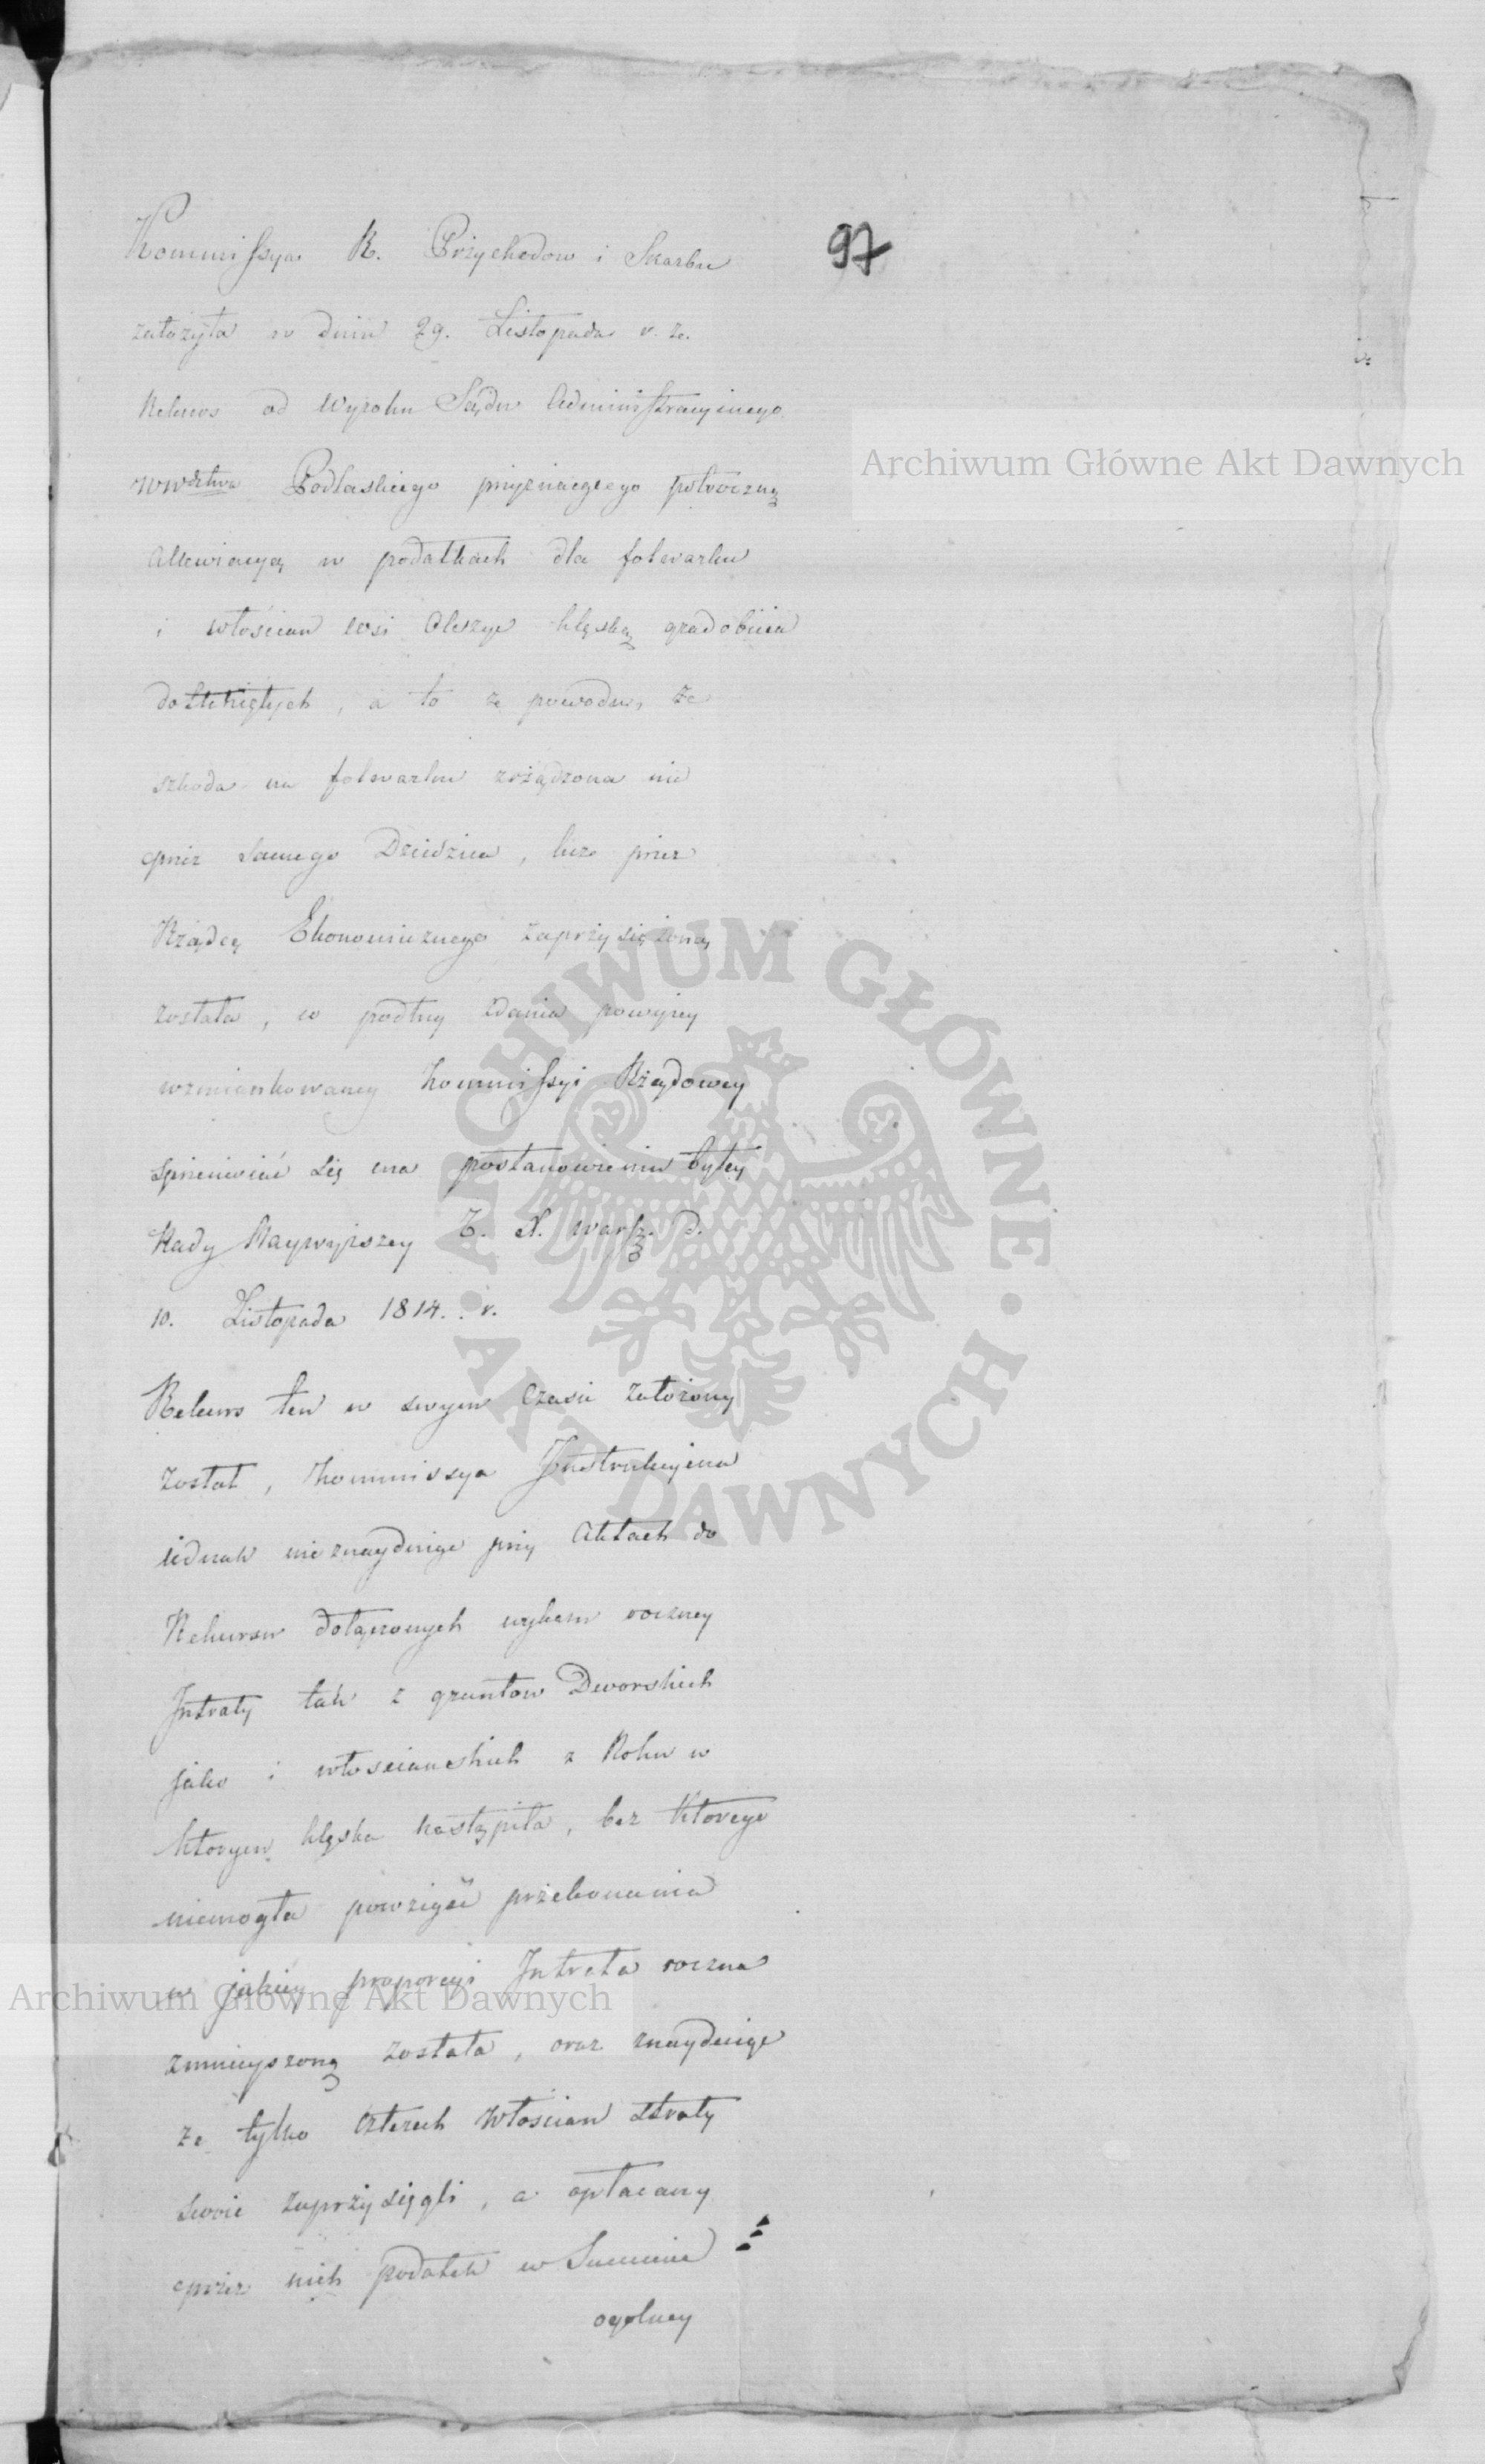 97
Kommissya R. Przychodow i Skarbu
założyła w dniu 29. Listopada r. z.
Rekurs od Wyroku Sądu Administracyinego
Wwdztwa Podlaskiego przyznaiącego połroczną
Allewiacyą w podatkach dla folwarku
i włościan wsi Olszye klęską gradobicia
dotkniętych, a to z powodu, że
szkoda na folwarku zrządzona nie
przez samego Dziedzica, lecz przez
Rządcę Ekonomicznego zaprzysiężoną
została, co podług zdania powyżey
wzmiankowaney Kommissyi Rządowey
sprzeciwiać się ma postanowieniu byłey
Rady Naywyższey T. X. Warsz. d.
10. Listopada 1814. r.
Rekurs ten w swym czasie założony
został, Kommissya Instrukcyina
iednak nieznayduiąc przy Aktach do
Rekursu dołączonych wykazu roczney
Intraty tak z gruntow Dworskich
jako i włosciańskich z Roku w
ktorym klęska nastąpiła, bez ktorego
niemogła powziąść przekonania
w jakiey proporcyi Intrata roczna
zmnieyszoną została, oraz znayduiąc
że tylko czterech Włoscian straty
swoie zaprzysięgli, a opłacany
przez nich podatek w Summie
ogolney
Archiwum Główne Akt Dawnych
Archiwum Główne Akt Dawnych
ARCHIWUM GŁÓWNE · AKT DAWNYCH ·